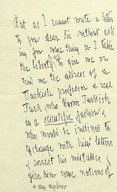 But as I cannot write a letter
to you dear Sir without ask
ing you some thing so I take
the liberty to give me or
send me the address of a
Turkish professor or a real
Turk who knows Turkish
in a scientific fashion &
who would be inclined to
exchange with his letters
& correct his mistakes &
give him some notions of